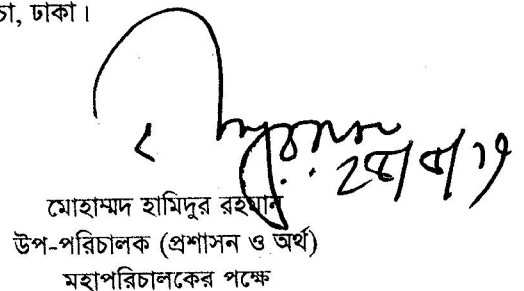 চা, ঢাকা।
মোহাম্মদ হামিদুর রহমান
উপ-পরিচালক (প্রশাসন ও অর্থ)
মহাপরিচালকের পক্ষে